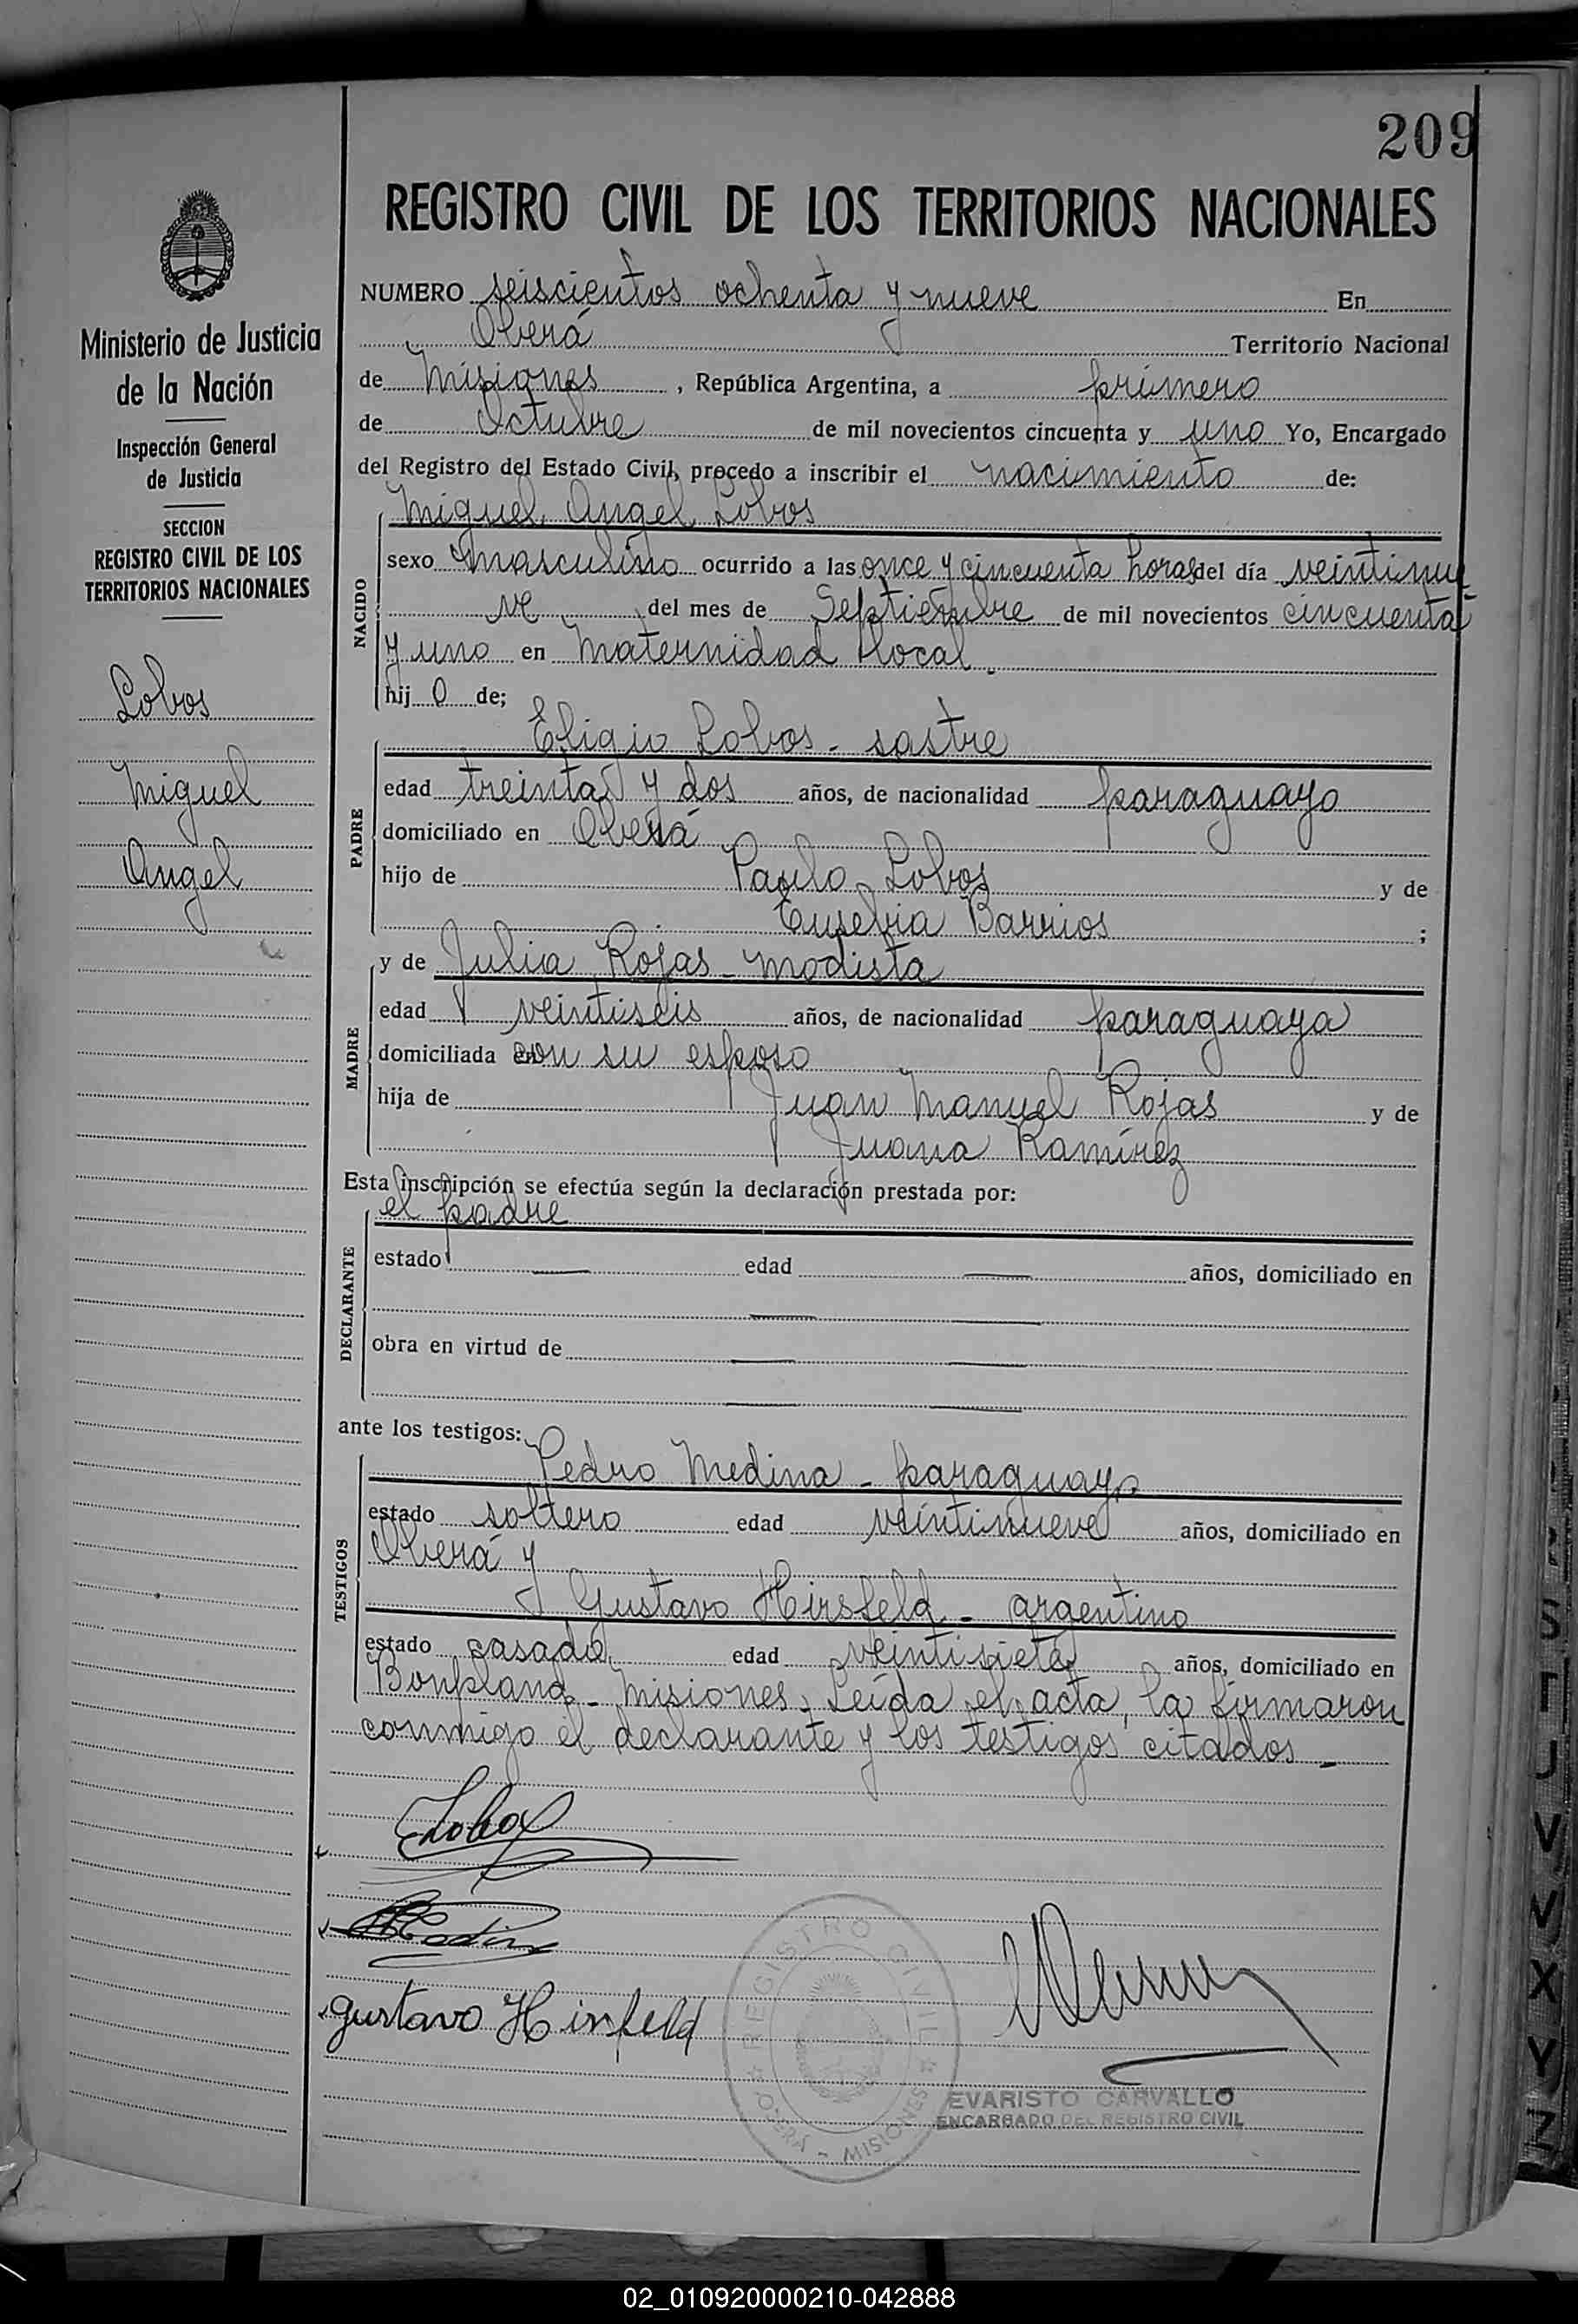 209
REGISTRO CIVIL DE LOS TERRITORIOS NACIONALES
Ministerio de Justicia
de la Nación
Inspección General
de Justicia
SECCION
REGISTRO CIVIL DE LOS
TERRITORIOS NACIONALES
Lobos
Miguel
Angel
NUMERO seiscientos ochenta y nueve En
Oberá Territorio Nacional
de Misiones, República Argentina, a primero
de Octubre de mil novecientos cincuenta y uno Yo, Encargado
del Registro del Estado Civil, procedo a inscribir el nacimiento de:
NACIDO
Miguel Angel Lobos
sexo masculino ocurrido a las once y cincuenta horas del día veintinue
ve del mes de Septiembre de mil novecientos cincuenta
y uno en Maternidad local.
hijo de;
PADRE
Eligio Lobos - sastre
edad treinta y dos años, de nacionalidad paraguayo
domiciliado en Oberá
hijo de Paulo Lobos y de
Eusebia Barrios ;
MADRE
y de Julia Rojas - modista
edad veintiseis años, de nacionalidad paraguaya
domiciliada en con su esposo
hija de Juan Manuel Rojas y de
Juana Ramírez
Esta inscripción se efectúa según la declaración prestada por:
DECLARANTE
el padre
estado — edad — años, domiciliado en
obra en virtud de
ante los testigos:
TESTIGOS
Pedro Medina - paraguayo
estado soltero edad veintinueve años, domiciliado en
Oberá y
Gustavo Hirsfeld - argentino
estado casado edad veintisiete años, domiciliado en
Bonpland - Misiones. Leída el acta, la firmaron
conmigo el declarante y los testigos citados -
ELobos
Gustavo Hirsfeld
REGISTRO CIVIL
OBERA - MISIONES
EVARISTO CARVALLO
ENCARGADO DEL REGISTRO CIVIL
S
T
U
V
W
X
Y
Z
02_010920000210-042888